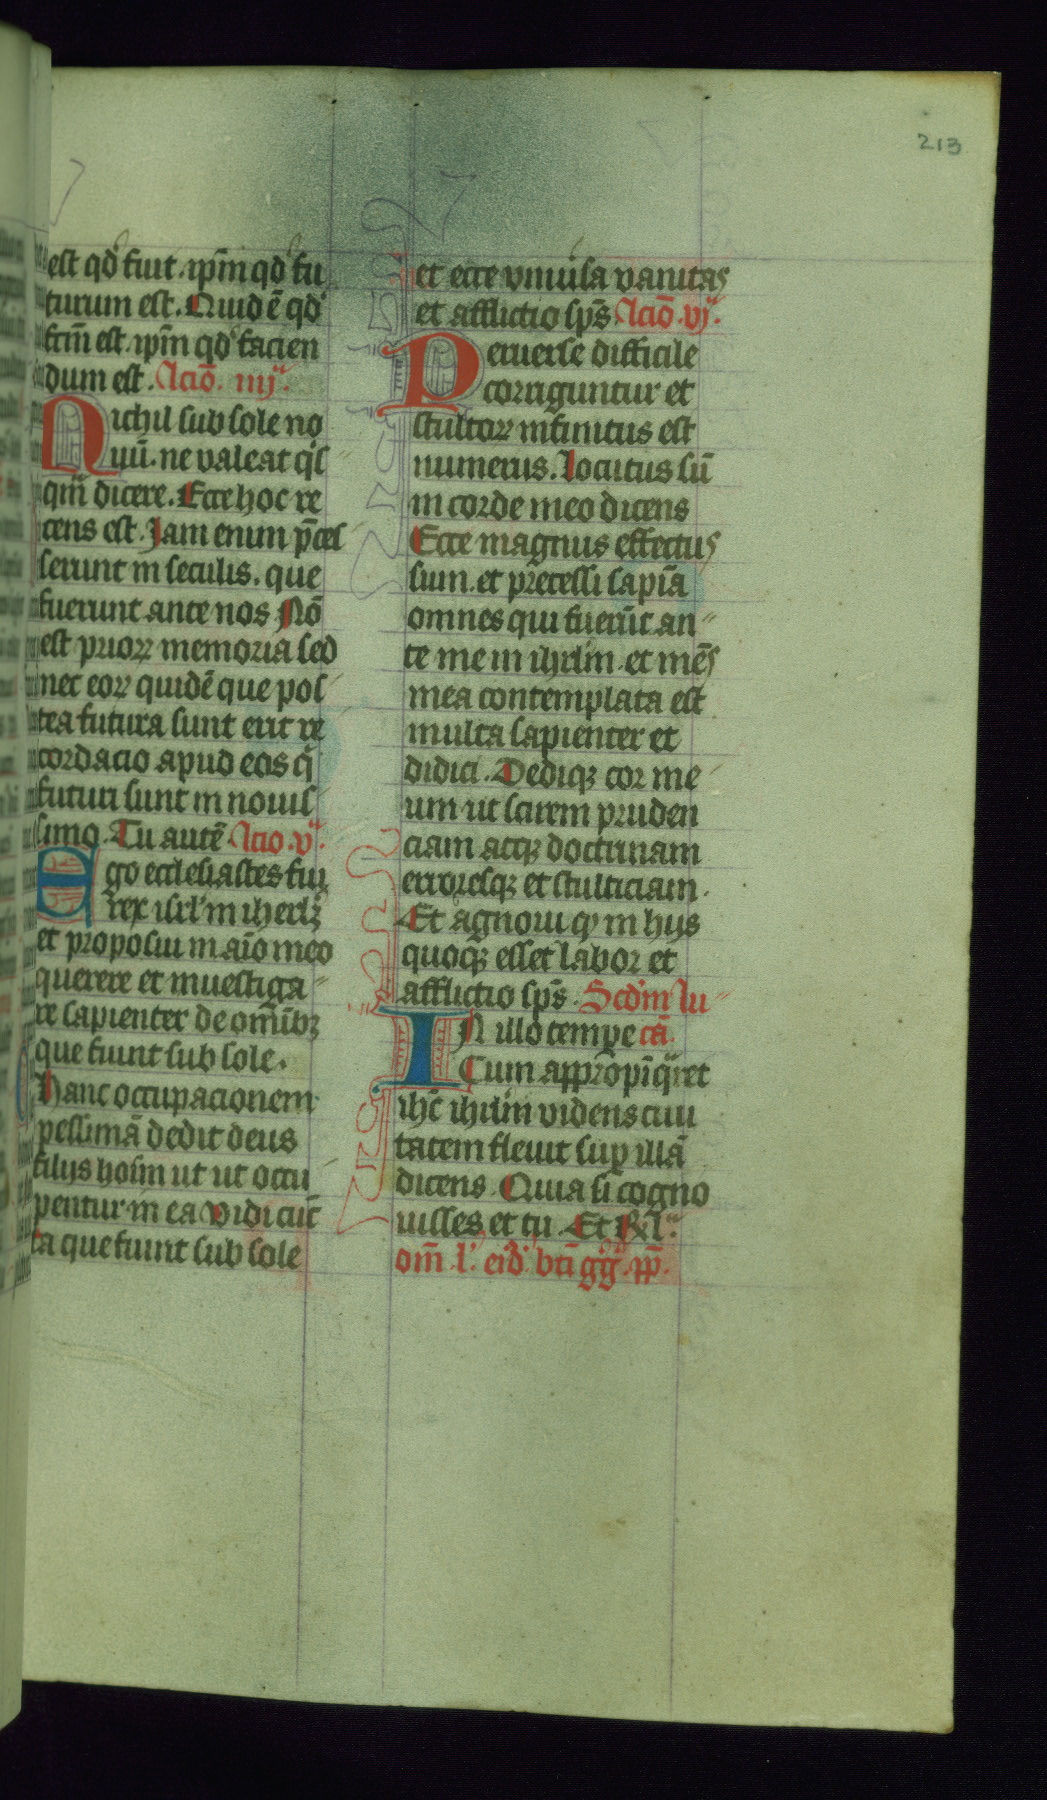 213
est qd fuit. ipm qd fu
turum est. Quid ē qd
fcm̄ est. ipm qd facien
dum est. Lcio. iiij.
Nichil sub sole no
uū. ne valeat qͥs
qm̄ dicere. Ecce hoc re
cens est. Jam enim p̄ces
serunt in seculis. que
fuerunt ante nos Nō
est prioꝝ memoria sed
nec eoꝝ quidē que pos
tea futura sunt erit re
cordacio apud eos qͥ
futuri sunt in nouis
simo. Tu autē Lcio. v.
Ego ecclesiastes fui
rex isrl' in iherlꝫ
et proposui in aīo meo
querere et inuestiga
re sapienter de omībꝫ
que fiunt sub sole.
Hanc occupacionem
pessimā dedit deus
filijs hoīm ut ut occu
pentur in ea Vidi cūc
ta que fiunt sub sole
et ecce vniu͛sa vanitas
et afflictio sps̄ Lcio. vj.
Peruerse difficile
corriguntur et
stultoꝝ infinitus est
numerus. Locutus sū
in corde meo dicens
Ecce magnus effectus
sum. et p̄cessi sapīa
omnes qui fuerūt an
te me in ihrlm. et mēs
mea contemplata est
multa sapienter et
didici. Dediqꝫ cor me
um ut scirem pruden
ciam atqꝫ doctrinam
erroresqꝫ et stulticiam.
Et agnoui ꝙ in hijs
quoqꝫ esset labor et
afflictio sps̄. Scd'm lu
In illo tempe cā.
Cum appropīqret
ihc̄ ihrlm videns ciui
tatem fleuit suꝑ illā
dicens. Quia si cogno
uisses et tu. Et Rel'.
om̄. l'. eid'. bti gḡ. pp̄.